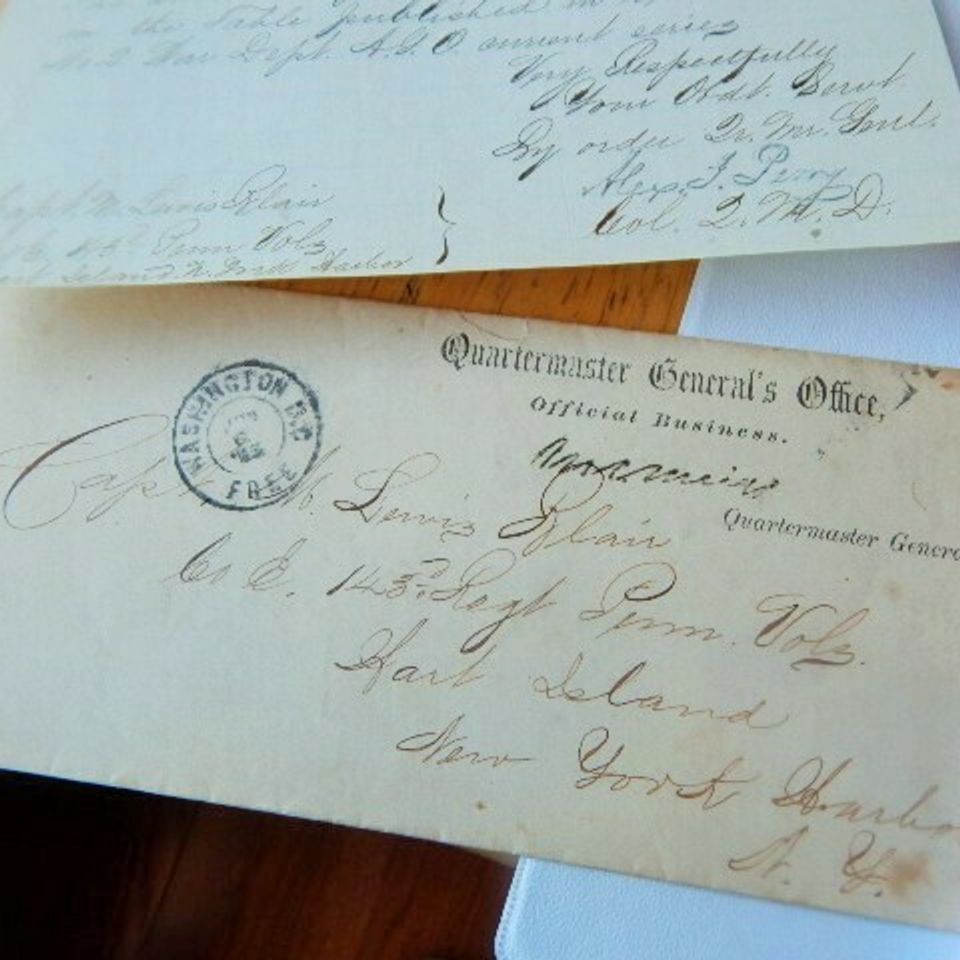 in the Table published in
War Dept. A.G.O current series
Very Respectfully
Your Obdt. Servt.
By order Qr. Mr. Genl.
Alex. J. Perry
Col. Q. M. D.
Capt M. Lewis Blair
Co E, 143d Penn Vols
Hart Island N. York Harbor
WASHINGTON D.C.
FREE
Quartermaster General's Office,
Official Business.
Quartermaster Genera
Capt M. Lewis Blair
Co E. 143d. Regt Penn. Vols.
Hart Island
New York Harbo
N. Y.